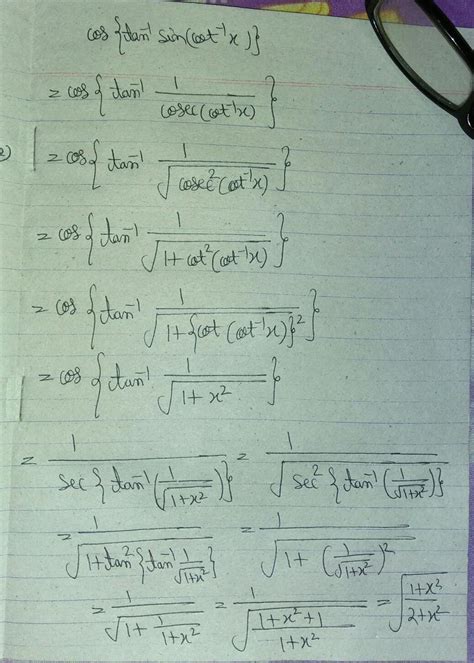 cos{tan⁻¹ sin(cot⁻¹x)}
= cos{ tan⁻¹ 1/cosec(cot⁻¹x) }
= cos{ tan⁻¹ 1/√(cosec²(cot⁻¹x)) }
= cos{ tan⁻¹ 1/√(1+cot²(cot⁻¹x)) }
= cos{ tan⁻¹ 1/√(1+{cot(cot⁻¹x)}²) }
= cos{ tan⁻¹ 1/√(1+x²) }
= 1/sec{tan⁻¹(1/√(1+x²))} = 1/√(sec²{tan⁻¹(1/√(1+x²))})
= 1/√(1+tan²{tan⁻¹ 1/√(1+x²)}) = 1/√(1+(1/√(1+x²))²)
= 1/√(1+1/(1+x²)) = 1/√((1+x²+1)/(1+x²)) = √((1+x²)/(2+x²))